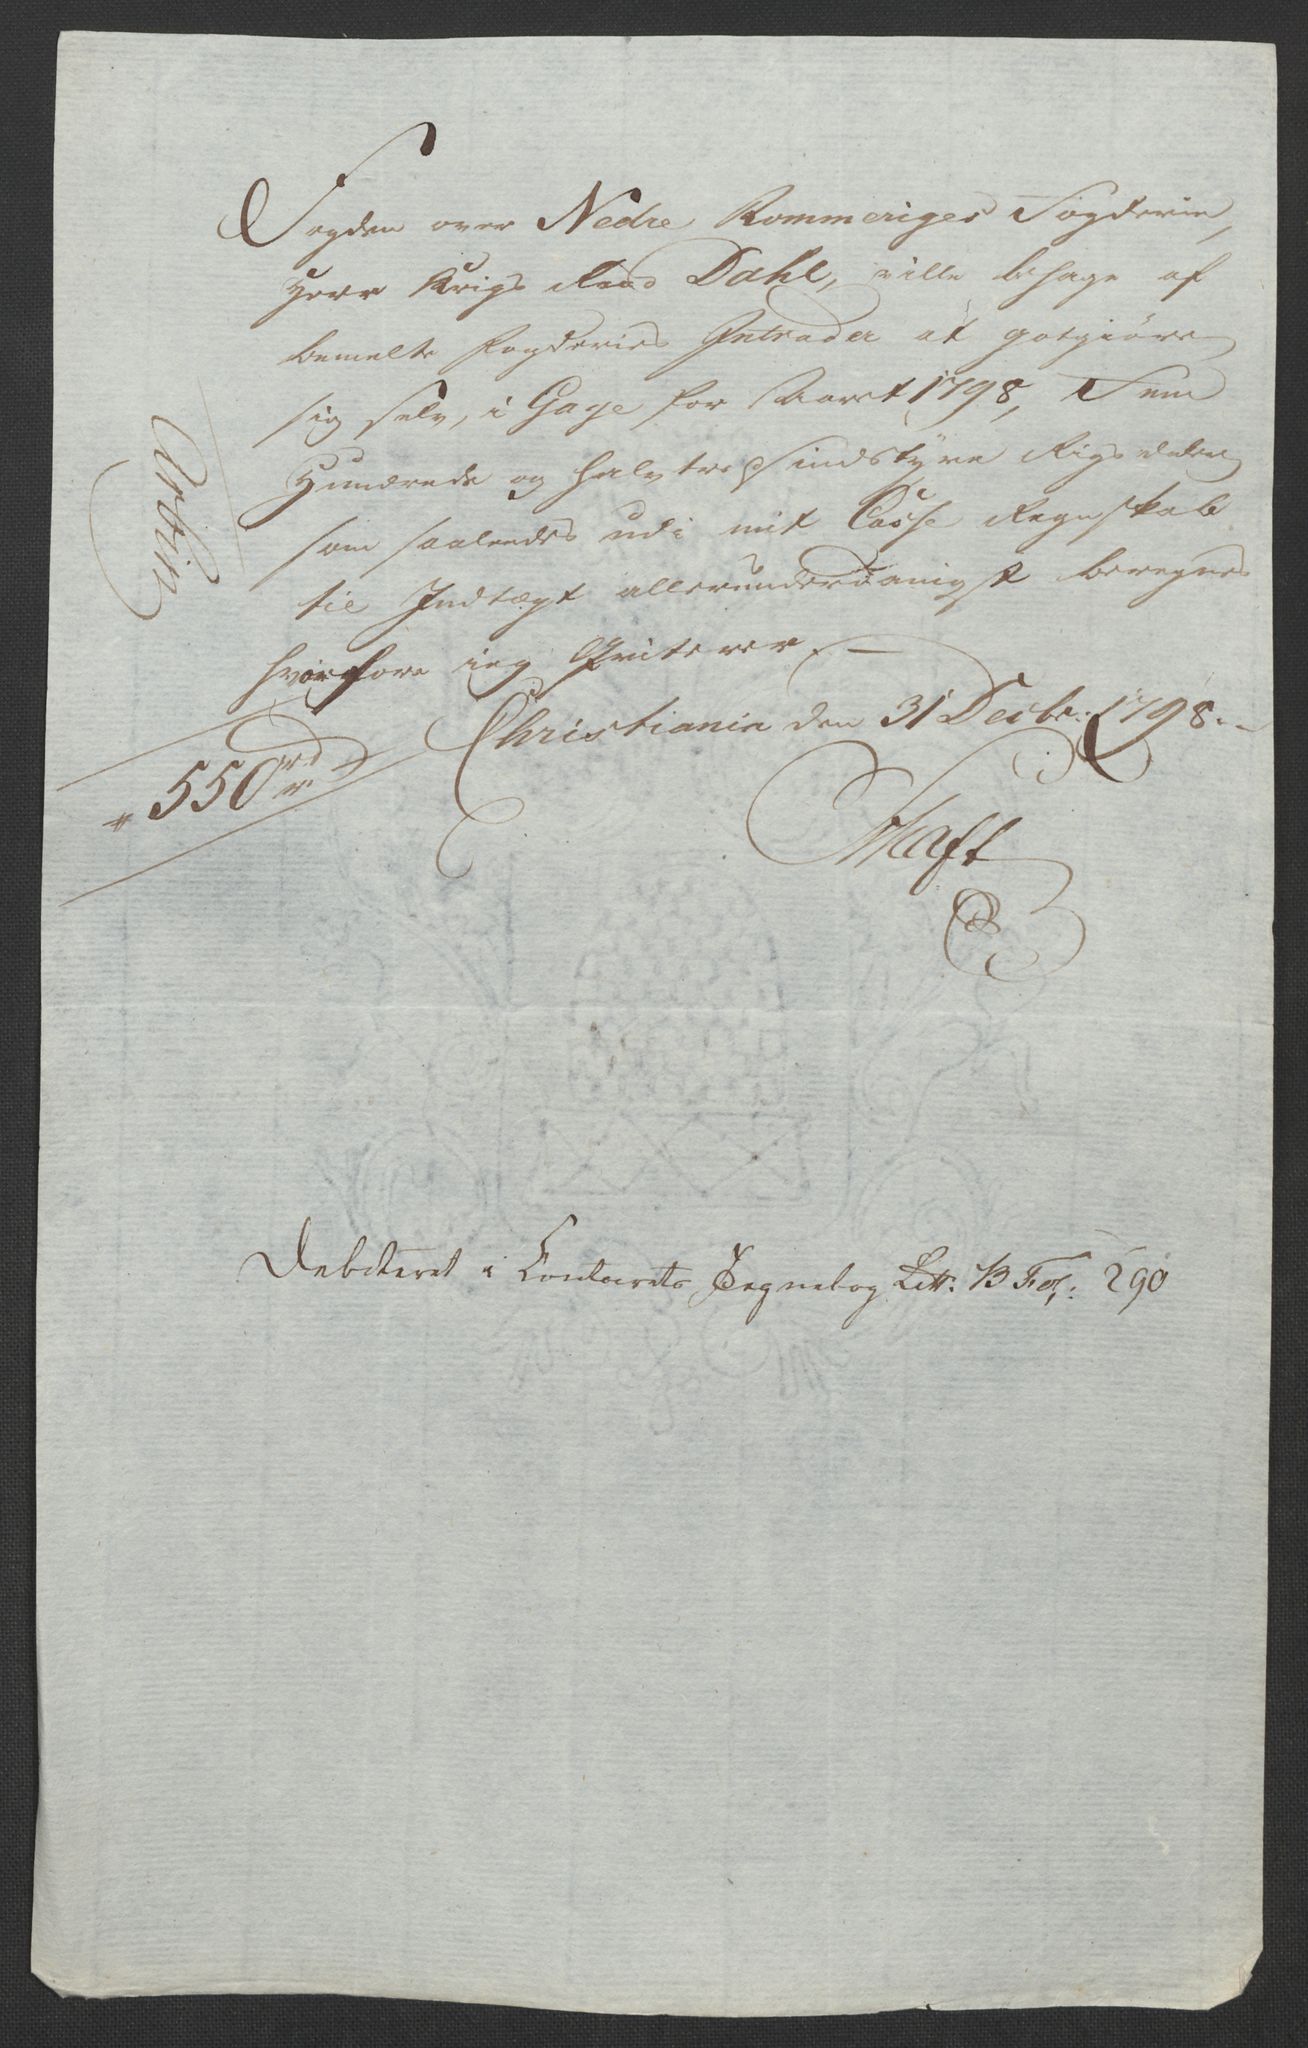 Fogden over Nedre Rommeriges Fogderie,
Herr Krigs Raad Dahl, ville behage af
bemelte Fogderies Intrader at gotgiøre
sig selv, i Gage for Aaret 1798, Fem
Hundrede og halvtresindstyve Rigsdaler
som saaledes udi mit Casse Regnskab
til Indtægt allerunderdanigst beregnes
hvorfore ieg Qviterer. —
Christiania den 31 Decbr: 1798.
550 rd
Haft
Debiteret i Contoirets Regnebog Litr: B Fol: 290